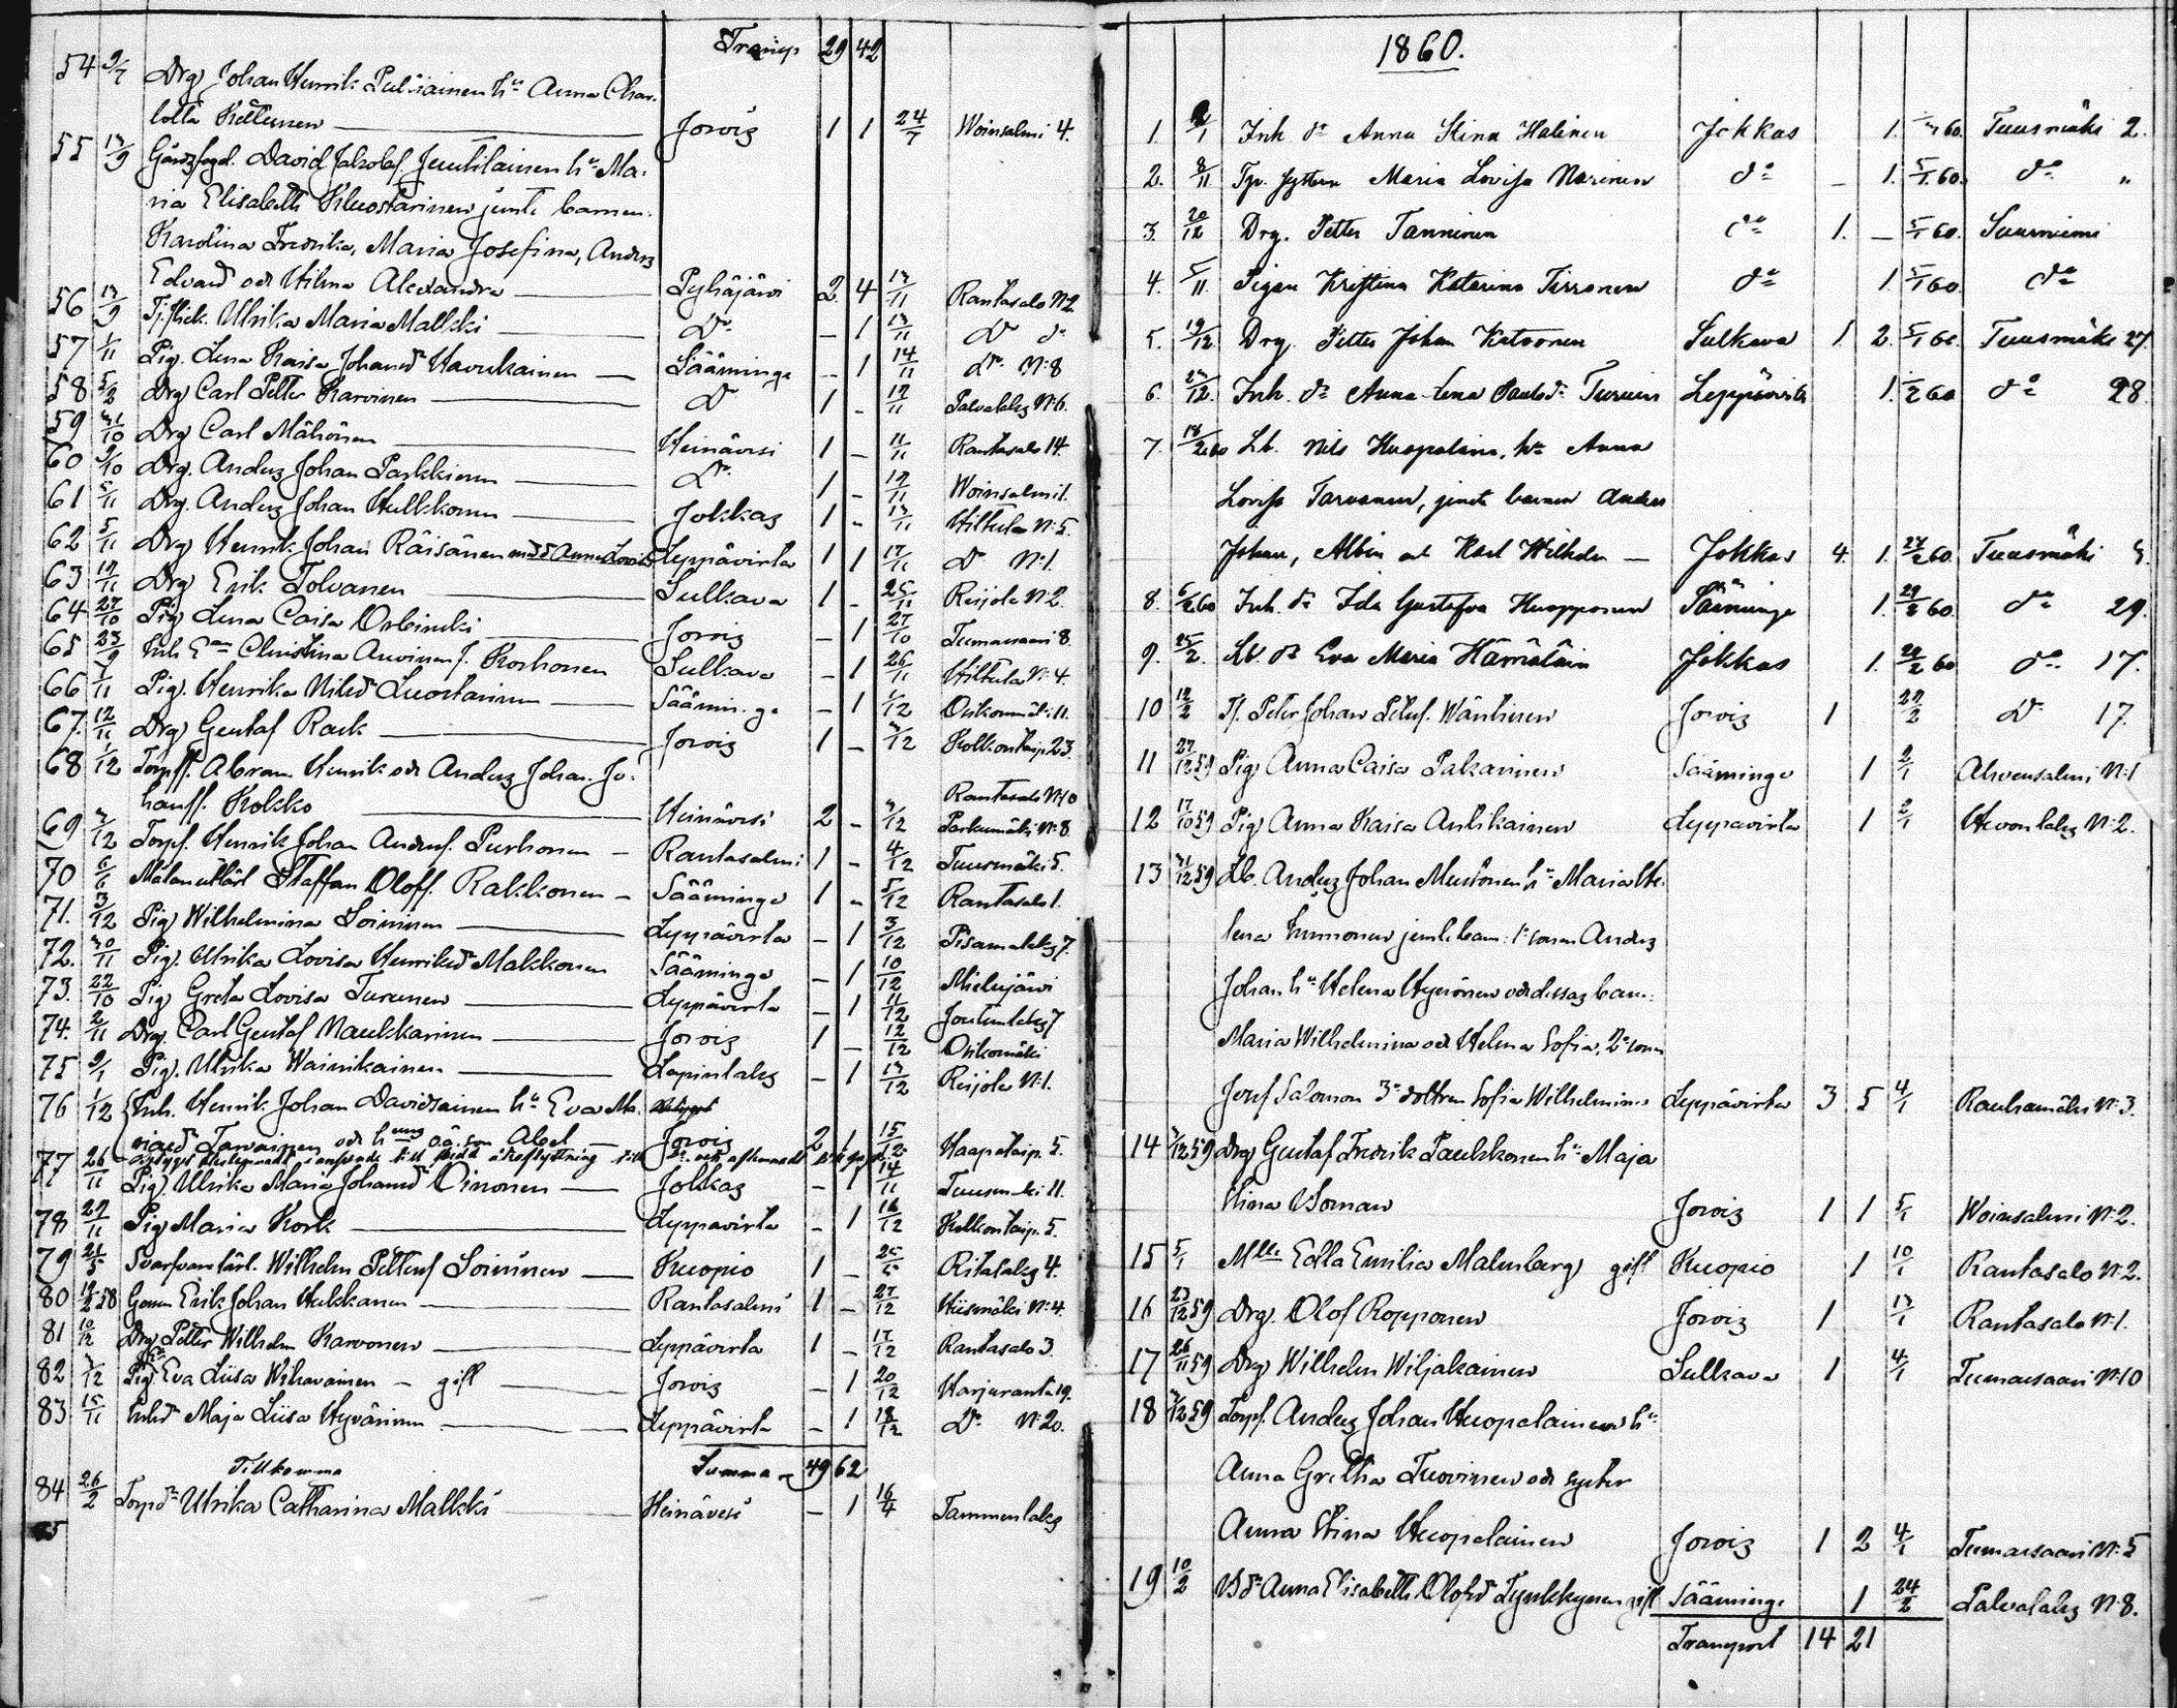 Transp 29 42
54 9/7 Drg Johan Henrik Pulliainen hu Anna Char-
lotta Kettunen Jorois 1 1 24/7 Woinsalmi 4.
55 13/9 Gårdsfogd. David Jakobsf. Juutilainen hu Ma-
ria Elisabeth Kluostarinen jemte barnen:
Karolina Fredrika, Maria Josefina, Anders
Edvard och Hilma Alexandra Pyhäjärvi 2 4 13/11 Rantasalo N:2
56 13/9 Tj.flick. Ulrika Maria Malkki Do – 1 13/11 Do do
57 1/11 Pig. Lena Kaisa Johansd Havukainen Sääminge – 1 14/11 do N:8
58 5/2 Drg Carl Petter Karvinen Do 1 – 19/11 Palvalaks N:6.
59 31/10 Drg Carl Mähönen Heinävesi 1 – 11/11 Rantasalo 14.
60 9/10 Drg. Anders Johan Parkkinen Do 1 – 19/11 Woinsalmi 1.
61 5/11 Drg. Anders Johan Hulkkonen Jokkas 1 – 13/11 Hiltula N:5.
62 5/11 Drg Henrik Johan Räisänen med Anna Lovisa Leppävirta 1 1 17/11 Do N:1.
63 19/11 Drg Erik Tolvanen Sulkava 1 – 25/11 Reijola N:2.
64 27/10 Pig Lena Caisa Orbinski Jorois – 1 27/10 Tuemarsaari 8
65 23/9 Inh Ean Christina Auvinen f. Korhonen Sulkava – 1 26/11 Hiltula N:4.
66 7/11 Pig. Henrika Nilsd Luostarinen Sääminge – 1 1/12 Osikonmäki 11.
67. 12/11 Drg Gustaf Rask Jorois 1 – 3/12 Kolkontaip. 23.
68 1/12 Torpff. Abram Henrik och Anders Johan Jo-
hansf. Kokko Heinävesi 2 – 3/12 Rantasalo N:10
69 3/12 Torpf. Henrik Johan Andersf. Purhonen Rantasalmi 1 – 4/12 Parkumäki N:8
70 6/6 Staffan Oloff. Rakkonen Sääminge 1 – 5/12 Tuusmäki 5.
71. 3/12 Pig Wilhelmina Soininen Leppävirta – 1 3/12 Rantasalo 1.
72. 30/11 Pig. Ulrika Lovisa Henriksd Makkonen Sääminge – 1 10/12 Pisamalaks 7.
73. 22/10 Pig Greta Lovisa Turunen Leppävirta – 1 11/12 Mielujärvi
74. 2/11 Drg. Carl Gustaf Naukkarinen Jorois 1 – 12/12 Joutenlaks 7
75 9/1 Pig. Ulrika Wainikainen Lapinlaks – 1 13/12 Osikomäki
76 1/12 Inh. Henrik Johan Davidsainen hu Eva Ma- Reijola N:1.
riasd Tarvainen och Abel Jorois 2 1 15/12 Haapataip. 5.
77 26/11 Pig. Ulrika Maria Johansd Oinonen Jokkas – 1 14/11 Tuusmäki 11.
78 29/11 Pig Maria Kork Leppävirta – 1 16/12 Kolkontaip. 5.
79 21/5 Svarfvarelärl. Wilhelm Pettersf Soininen Kuopio 1 – 25/5 Ritalaks 4.
80 19/2 58 Gossen Erik Johan Hukkanen Rantasalmi 1 – 27/12 Hiismäki N:4.
81 10/12 Drg Petter Wilhelm Karvonen Leppävirta 1 – 17/12 Rantasalo 3
82 3/12 Pig Eva Liisa Wihavainen – gift Jorois – 1 20/12 Harjuranta 19.
83 15/11 Inhd Maja Liisa Hyvärinen Leppävirta – 1 18/12 Do N:20.
Tillkomma Summa 49 62
84 26/2 Torpd Ulrika Catharina Malkki Heinävesi – 1 16/4 Tammenlaks
1860.
1. 2/1 Inh. dr Anna Stina Halinen Jokkas 1. 60. Tuusmäki 2.
2. 8/11 Maria Lovisa Narinen do – 1. 5/1 60. do "
3. 20/12 Drg. Petter Tanninen do 1. – 5/1 60. Suurniemi
4. 5/11 Pigan Kristina Katarina Tirronen do 1 5/1 60. do
5. 19/12 Drg. Petter Johan Katvonen Sulkava 1 2. 5/1 60. Tuusmäki 27.
6. 23/12. Inh. dr Anna Lena Paulsdr Turuin Leppävirta 1. 60 do 28.
7. 18/2 60 Lb. Nils Huopalain. hu Anna
Lovisa Tarvanen, jemte barnen Anders
Johan, Albin och Karl Wilhelm Jokkas 4. 1. 27/2 60. Tuusmäki
8. 6/2 60 Inh. dr Ida Gustafva Huopponen Sääminge 1. 29/2 60. do 29.
9. 25/2. Lb. dr Eva Maria Hämäläin Jokkas 1. 29/2 60 do 17.
10 12/2 Tf. Peter Johan Petersf. Wäntinen Jorois 1 29/2 Do 17.
11 27/12 59 Pig Anna Caisa Pakarinen Sääminge 1 2/1 Ahvensalmi N:1
12 17/10 59 Pig Anna Kaisa Antikainen Leppävirta 1 2/1 Hevonlaks N:2.
13 31/12 59 Lb. Anders Johan Mustonen hu Maria He-
lena Immonen jemte barn: 1e sonen Anders
Johan hu Helena Hyvönen och dessas barn:
Maria Wilhelmina och Helena Sofia, 2e sonen
Josef Salomon 3e dottren Sofia Wilhelmina Leppävirta 3 5 4/1 Rauhamäki N:3.
14 3/12 59 Drg Gustaf Fredrik Paukkonen hu Maja
Stina Woman Jorois 1 1 5/1 Woinsalmi N:2.
15 5/1 Mlle Edla Emilia Malmberg gift Kuopio 1 10/1 Rantasalo N:2.
16 23/12 59 Drg. Olof Ropponen Jorois 1 13/1 Rantasalo N:1.
17 26/11 59 Drg Wilhelm Wiljakainen Sulkava 1 4/1 Tuemarsaari N:10
18 3/12 59 Torpf. Anders Johan Huopalainen hu
Anna Gretha Tuovinen och syster
Anna Stina Huopalainen Jorois 1 2 4/1 Tuemarsaari N:5
19 10/2 Bdr Anna Elisabeth Olofsd Tynkkynen gift Sääminge 1 24/2 Palvalaks N:8.
Transport 14 21